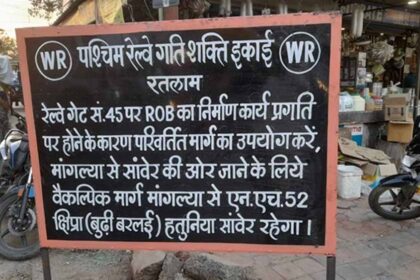 WR पश्चिम रेल्वे गति शक्ति इकाई WR
रतलाम
रेल्वे गेट सं.45 पर ROB का निर्माण कार्य प्रगति
पर होने के कारण परिवर्तित मार्ग का उपयोग करें,
मांगल्या से सांवेर की ओर जाने के लिये
वैकल्पिक मार्ग मांगल्या से एन.एच.52
क्षिप्रा (बुढी बरलई) हतुनिया सांवेर रहेगा।